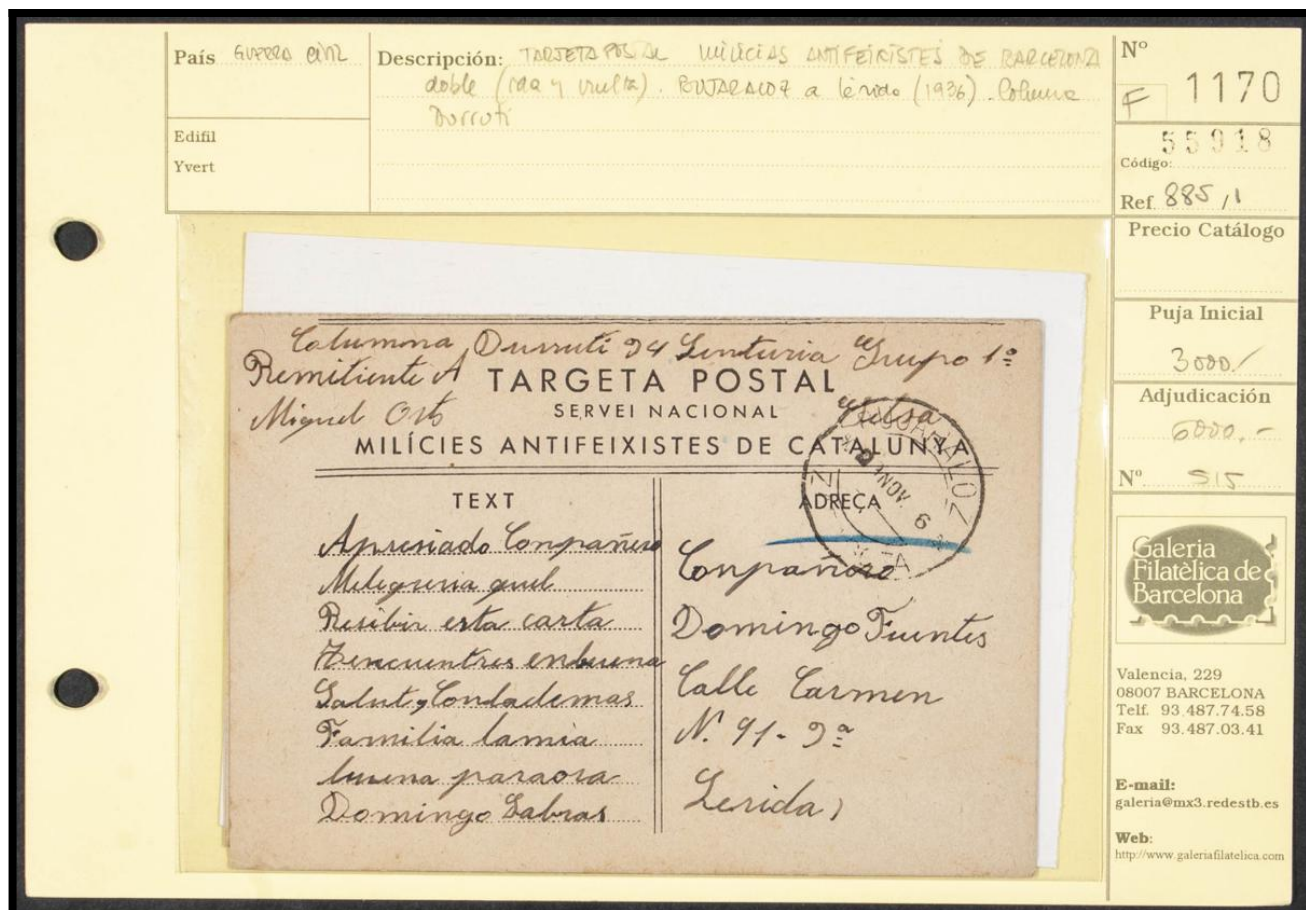 País GUERRA CIVIL
Descripción: TARJETA POSTAL MILICIAS ANTIFEIXISTES DE BARCELONA
doble (ida y vuelta). BUJARALOZ a Lérida (1936). Columna
Durruti
Edifil
Yvert
Nº
F 1170
55918
Código:
Ref. 885/1
Precio Catálogo
Puja Inicial
3000/
Adjudicación
6000.-
Nº 515
Galeria
Filatèlica de
Barcelona
Valencia, 229
08007 BARCELONA
Telf. 93.487.74.58
Fax 93.487.03.41
E-mail:
galeria@mx3.redestb.es
Web:
http://www.galeriafilatelica.com
Columna Durruti 94 Senturia Grupo 1º
Remitiente A
Miguel
TARGETA POSTAL
SERVEI NACIONAL
MILÍCIES ANTIFEIXISTES DE CATALUNYA
BUJARALOZ
NOV. 6
TEXT
Apresiado Conpañero
Melegreria quel
Resibir esta carta
Tencuentres enbuena
Salut y Condademas
Familia lamia
buena paraora
Domingo Sabras
ADREÇA
Conpañero
Domingo Fuentes
Calle Carmen
N. 91-
Lerida